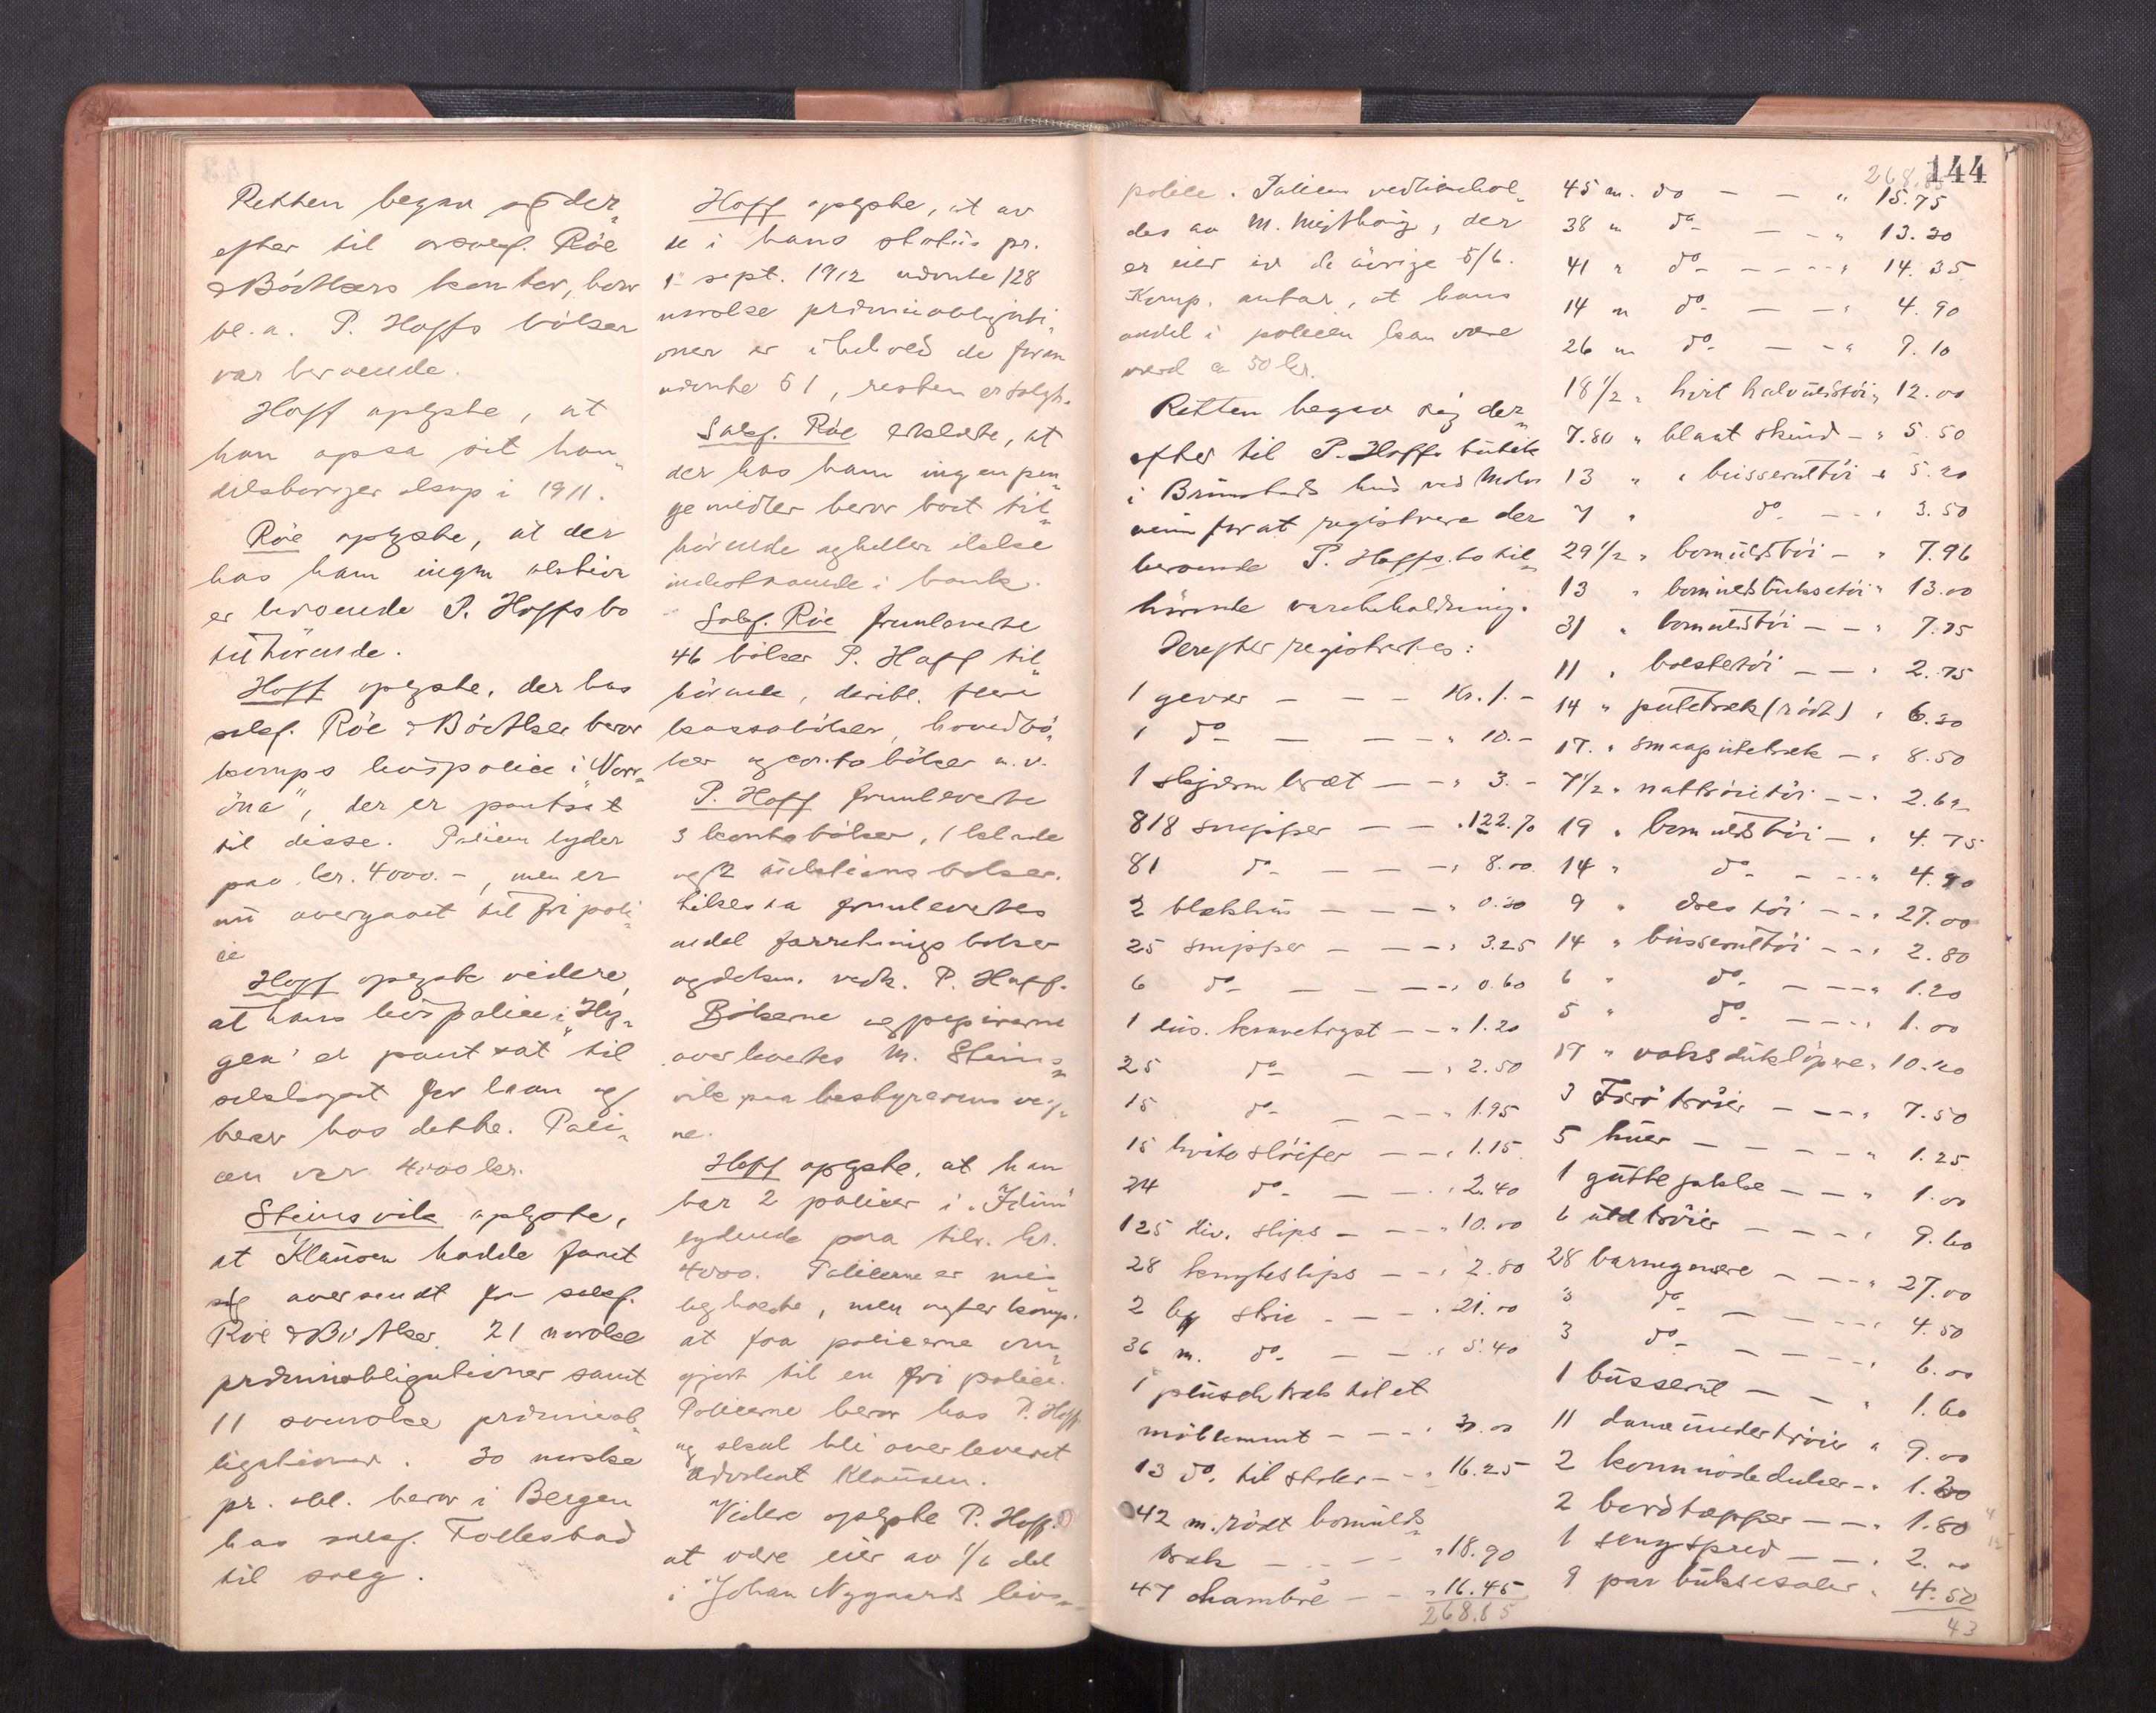 Retten begav sig der„
efter til overretssakf. Röe
& Böckers kontor, hvor
bl.a. P. Hoffs böker
var beroende.
Hoff oplyste, at
han opsa sit han„
delsborger skap i 1911.
Röe oplyste, at der
hos ham ingen aktiver
er beroende P. Hoffs bo
tilhörende.
Hoff oplyste, der hos
sakf. Röe & Böcker beror
komps livspolice i "Norr„
öna", der er pantsat
til disse. Policen lyder
paa kr. 4000.-, men er
nu overgaaet til fri poli„
ce
Hoff oplyste videre,
at hans livspolice i "Hy„
gea" er pantsat til
selskapet for laan og
beror hos dette. Poli„
cen var 4000 kr.
Steinsvik oplyste,
at Klausen hadde faaet
sig oversendt fra sakf.
Röe & Böcker 21 norske
præmieobligationer samt
11 svenske præmieob„
ligationer. 30 norske
pr. obl. beror i Bergen
hos sakf. Follestad
til salg.
Hoff oplyste, at av
de i hans status pr.
1 sept. 1912 nævnte 128
norske præmieobligati„
oner er i behold de foran
nævnte 51, resten er solgt.
Sakf. Röe erklærte, at
der hos ham ingen pen„
gemidler beror boet til„
hörende og heller ikke
indestaaende i bank.
Sakf. Röe fremleverte
46 böker P. Hoff til„
hörende, deribl. flere
kassaböker, hovedbö„
ker og contoböker m.v.
P. Hoff fremleverte
3 kontoböker, 1 kladde
og 2 auktions bøker.
Likesaa fremlevertes
endel forretnings bøker
og dokum. vedk. P. Hoff.
Bökerne og papirerne
overlevertes M. Steins„
vik paa bestyrerens veg„
ne.
Hoff oplyste, at han
har 2 policer i "Idun"
lydende paa tils. kr.
4000. Policerne er ube„
heftede, men agter komp.
at faa policerne om„
gjort til en fri police.
Policerne beror hos P. Hoff
og skal bli overleveret
advokat Klausen.
Videre oplyste P. Hoff
at være eier av 1/6 del
i Johan Nygaards livs„
144
police. Policen vedlikehol„
des av M. , der
er eier av de övrige 5/6.
Komp. antar, at hans
andel i policen kan være
værd ca 50 kr.
Retten begav sig der„
efter til P. Hoffs butik
i Brunstads hus ved Molo
veien for at registrere der
beroende P. Hoffs bo til„
hörende varebeholdning.
Derefter registrertes:
1 gevær — — — Kr. 1.-
1 do — — — " 10.-
1 skjærmbræt — — " 3.-
818 snipper — — " 122.70
81 do — — — " 8.00
2 blækhus — — — " 0.20
25 snipper — — — " 3.25
6 do — — — " 0.60
1 dus. kravebryst — — " 1.20
25 do — — " 2.50
15 do — — — " 1.95
15 hvite slöifer — — " 1.15
24 do — — " 2.40
125 div. slips — — " 10.00
28 knyteslips — — " 2.80
2 strie — — " 21.00
36 m. do — — " 5.40
1 plüschtræk til et
möblement — — " 30.00
13 do. til stoler — — " 16.25
42 m. rödt bomulds„
træk — — — " 18.90
47 chambré — — " 16.45
268.85
268.85
45 m. do — — " 15.75
38 " do — — " 13.30
41 " do — — — " 14.35
14 m do — — " 4.90
26 m do — — " 9.10
18 1/2 " hvit halvuldstöi " 12.00
7.80 " blaat skind — " 5.50
13 " " busserultöi " 5.20
7 " do — — " 3.50
29 1/2 " bomuldstöi — " 7.96
13 " bomuldsbuksetöi " 13.00
31 " bomuldstöi — — " 7.75
11 " bolstertöi — — " 2.75
14 " putetræk (rödt) " 6.30
17 " smaaputetræk — " 8.50
7 1/2 " nattröietöi — — " 2.62
19 " bomuldstöi — " 4.75
14 " do — — " 4.90
9 " drestöi — — " 27.00
14 " busserultöi — — " 2.80
6 " do — — — " 1.20
5 " do — — " 1.00
17 " voksduklöpere " 10.20
3 Færötröier — — — " 7.50
5 huer — — — — " 1.25
1 guttejakke — — " 1.00
6 uldtröier — — — " 9.60
28 barnegensere — — — " 27.00
3 do — — — " 4.50
3 do — — — " 6.00
1 busserul — — " 1.60
11 dameundertröier " 9.00
2 kommodeduker — " 1.20
2 bordtepper — — " 1.80
1 sengespred — — " 2.00
9 par buksesæler " 4.50
43